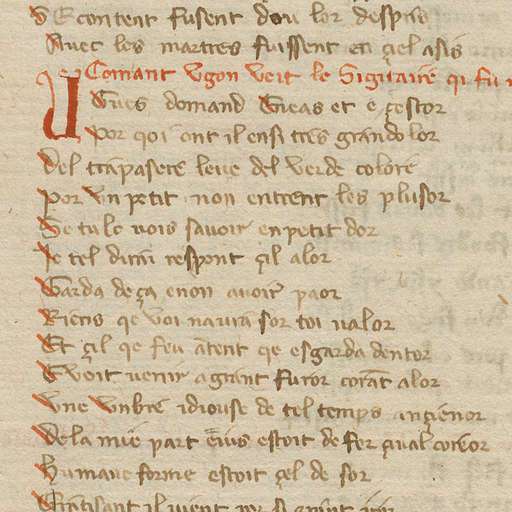 S E content fusent dou lor despris
Avec les martres fuissent en çel asis
Comant Vgon veit le Sigitaire qi fu
Vgues domand Eneas et e çestor
Por qoi ont il ensi tres grandolor
Del trapasere leue del verde colore
Por vn petit non entrent les plusor
Se tu le vois savoir en petit dor
Je tel dirai respont çil alor
Garda de ça e non avoir paor
Riens qe voi navra sor toi valor
Et çil qe feu atent qe esgarda dentor
E voit venir a grant furor corat a lor
Vne vnbre idiouse de tel temps ançienor
De la mie part eius estoit de fer çual coreor
Humane forme estoit çel de sor
il vient